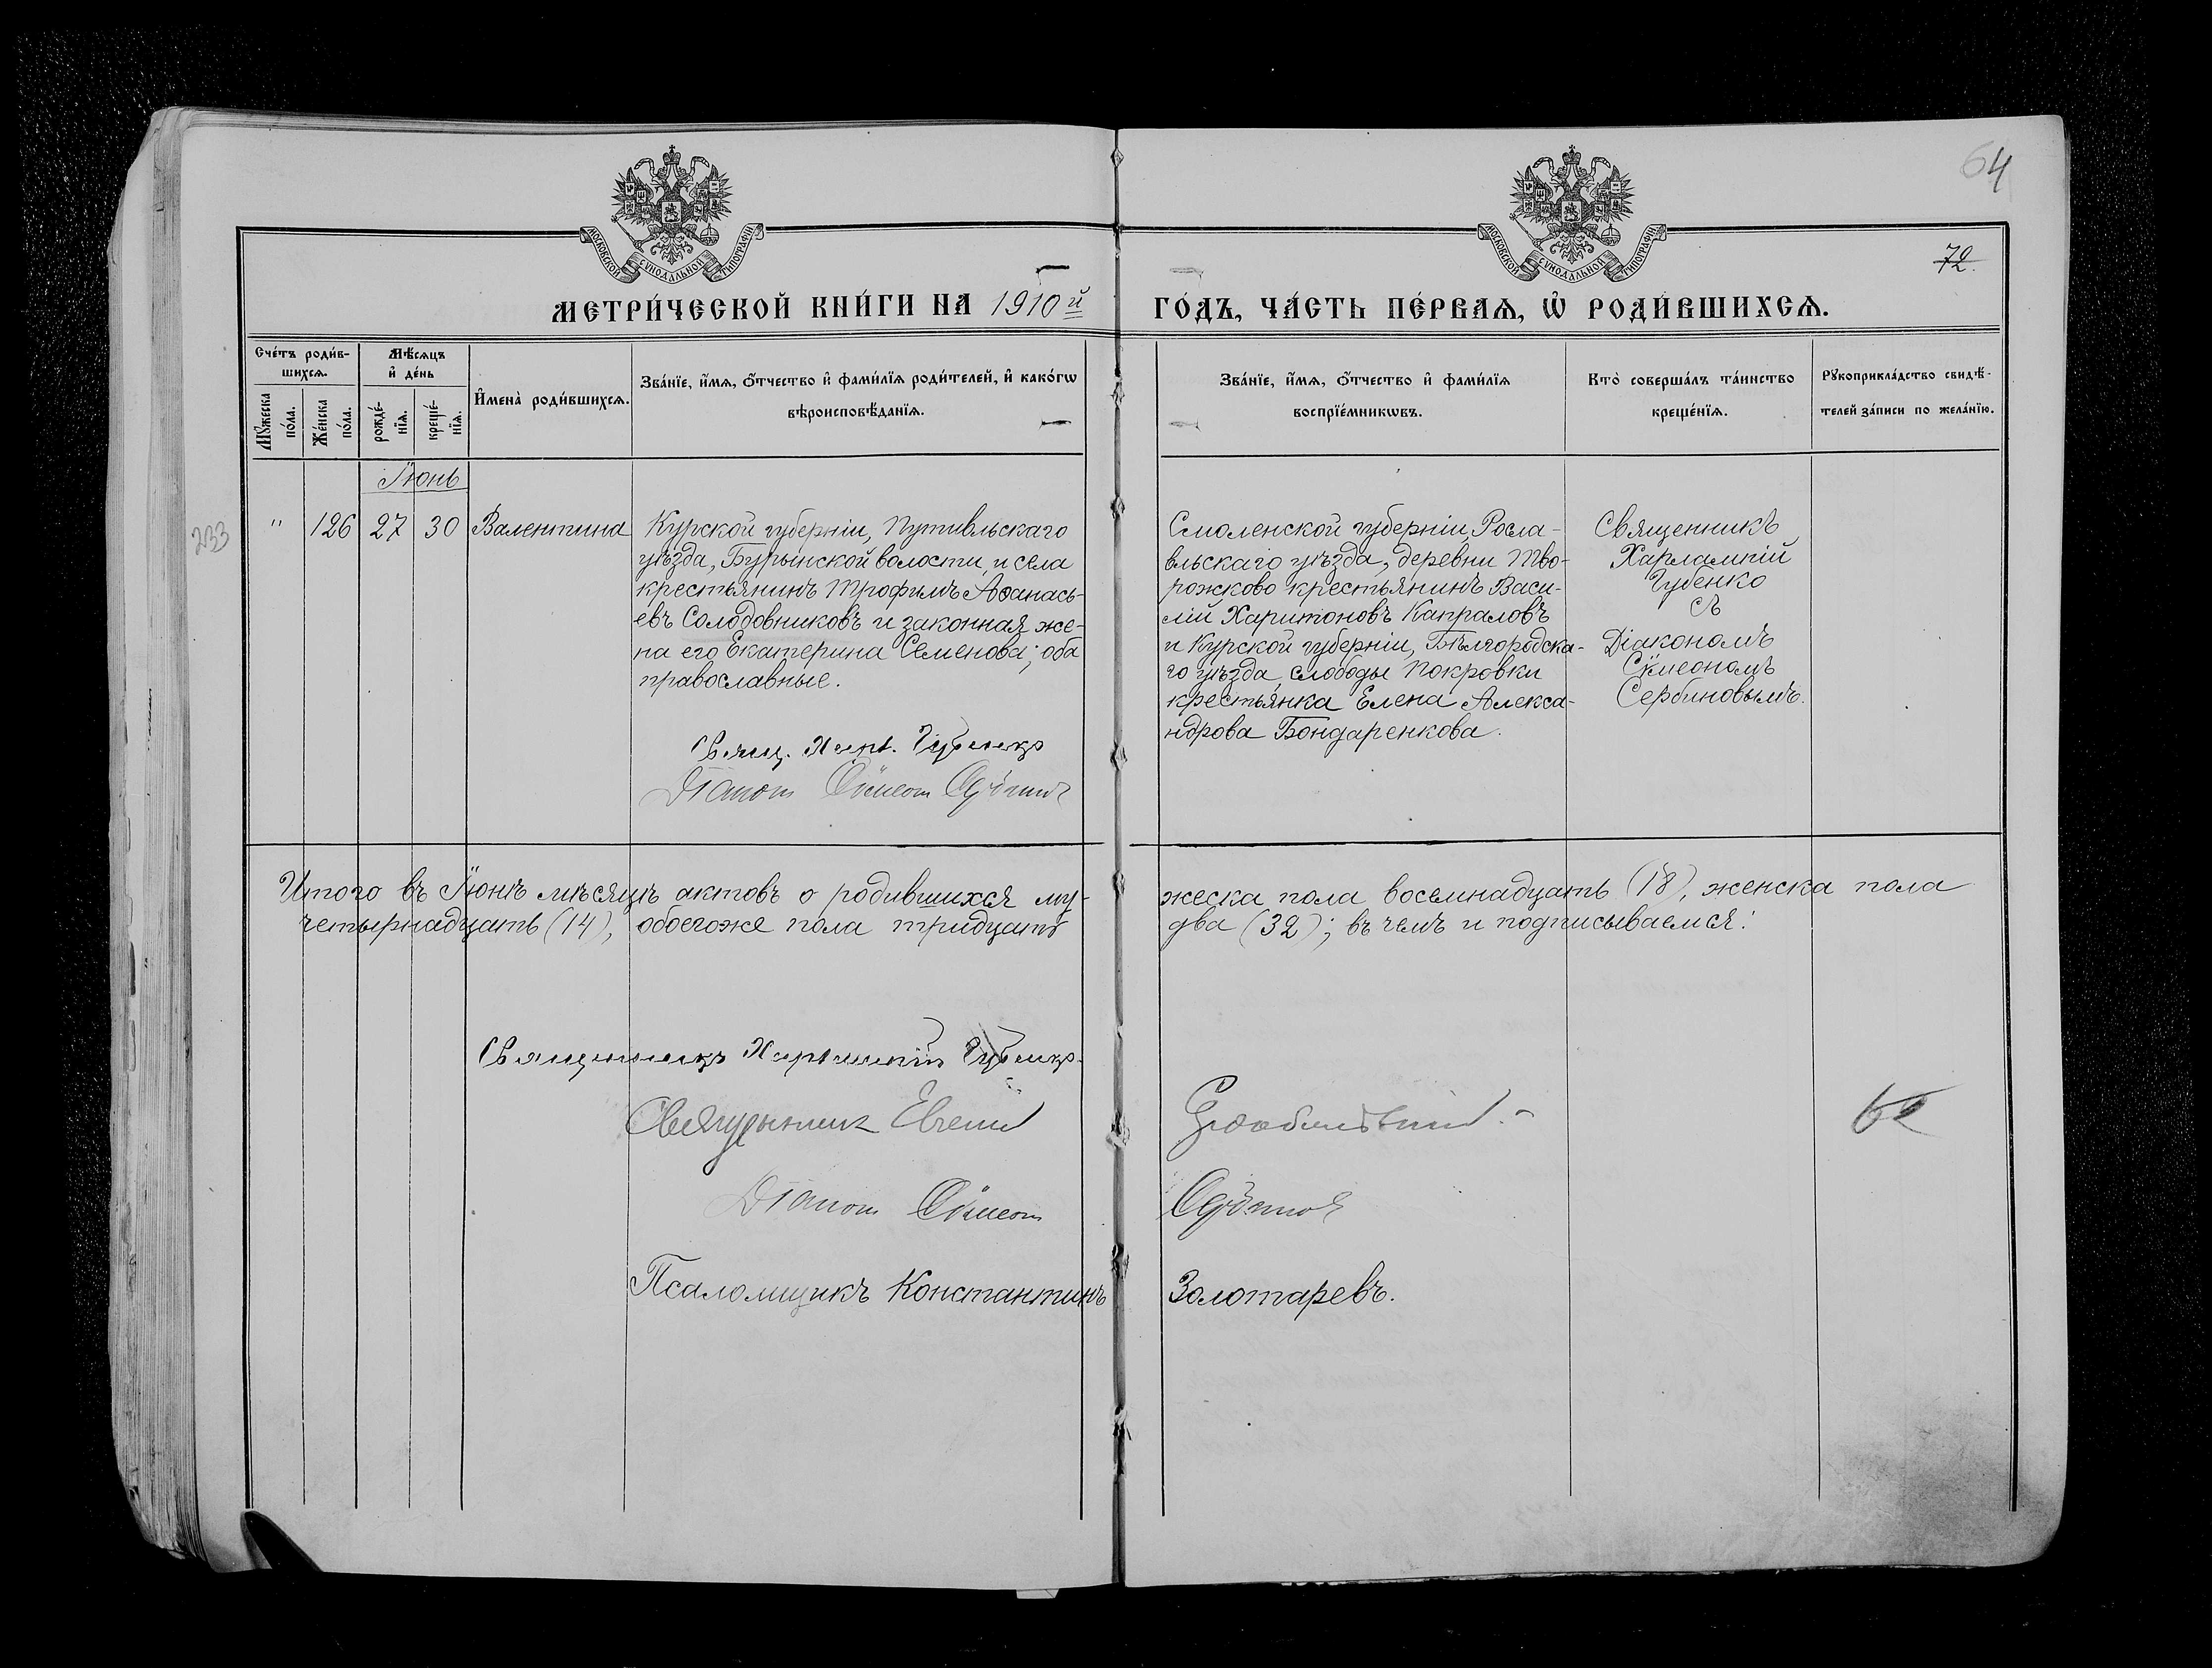 64
72.
МОСКОВСКОЙ СѴНОДАЛЬНОЙ ТИПОГРАФІИ
МОСКОВСКОЙ СѴНОДАЛЬНОЙ ТИПОГРАФІИ
МЕТРИ́ЧЕСКОЙ КНИ́ГИ НА 1910й ГО́ДЪ, ЧА́СТЬ ПЕ́РВАѦ, Ѡ҆ РОДИ́ВШИХСѦ.
Сче́тъ роди́в-
шихсѧ.
Мꙋ́жеска по́ла.
Же́нска по́ла.
Мѣ́сѧцъ
и҆ де́нь
рожде́-
нїѧ.
креще́-
нїѧ.
И҆мена̀ роди́вшихсѧ.
Зва́нїе, и҆́мѧ, ѻ҆́тчество и҆ фами́лїѧ роди́телей, и҆ како́гѡ
вѣроисповѣ́данїѧ.
Зва́нїе, и҆́мѧ, ѻ҆́тчество и҆ фами́лїѧ
воспрїе́мникѡвъ.
Кто̀ соверша́лъ та́инство
креще́нїѧ.
Рꙋкоприкла́дство свидѣ́-
телей за́писи по жела́нїю.
Іюнь
233
" 126 27 30 Валентина
Курской губерніи, Путивльскаго
уѣзда, Бурынской волости и села
крестьянинъ Трофимъ Аѳанась-
евъ Солодовниковъ и законная же-
на его Екатерина Семенова; оба
православные.
Свящ. Харл. Губенко
Діаконъ Сѵмеонъ Сербиновъ
Смоленской губерніи, Росла-
вльскаго уѣзда, деревни Тво-
рожково крестьянинъ Васи-
лій Харитоновъ Капраловъ
и Курской губерніи, Бѣлгородска-
го уѣзда, слободы Покровки
крестьянка Елена Алекса-
ндрова Бондаренкова.
Священникъ
Харлампій
Губенко
съ
Діакономъ
Сѵмеономъ
Сербиновымъ.
Итого въ Іюнѣ мѣсяцѣ актовъ о родившихся му-
жеска пола восемнадцать (18), женска пола
четырнадцать (14), обоегоже пола тридцать
два (32); въ чемъ и подписываемся:
Священникъ Харлампій Губенко.
Священник Евгеній
62
Діаконъ Сѵмеонъ Сербиновъ
Псаломщикъ Константинъ Золотаревъ.